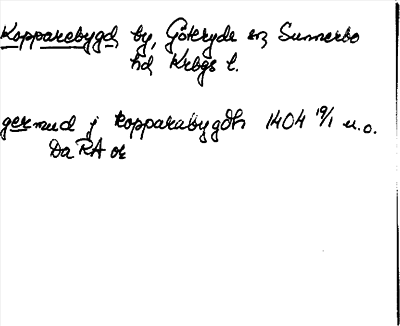 Kopparebygd by, Göteryds sn, Sunnerbo
hd, Krbgs l.
germud j kopparabygdh 1404 19/1 u.o.
Da RA or